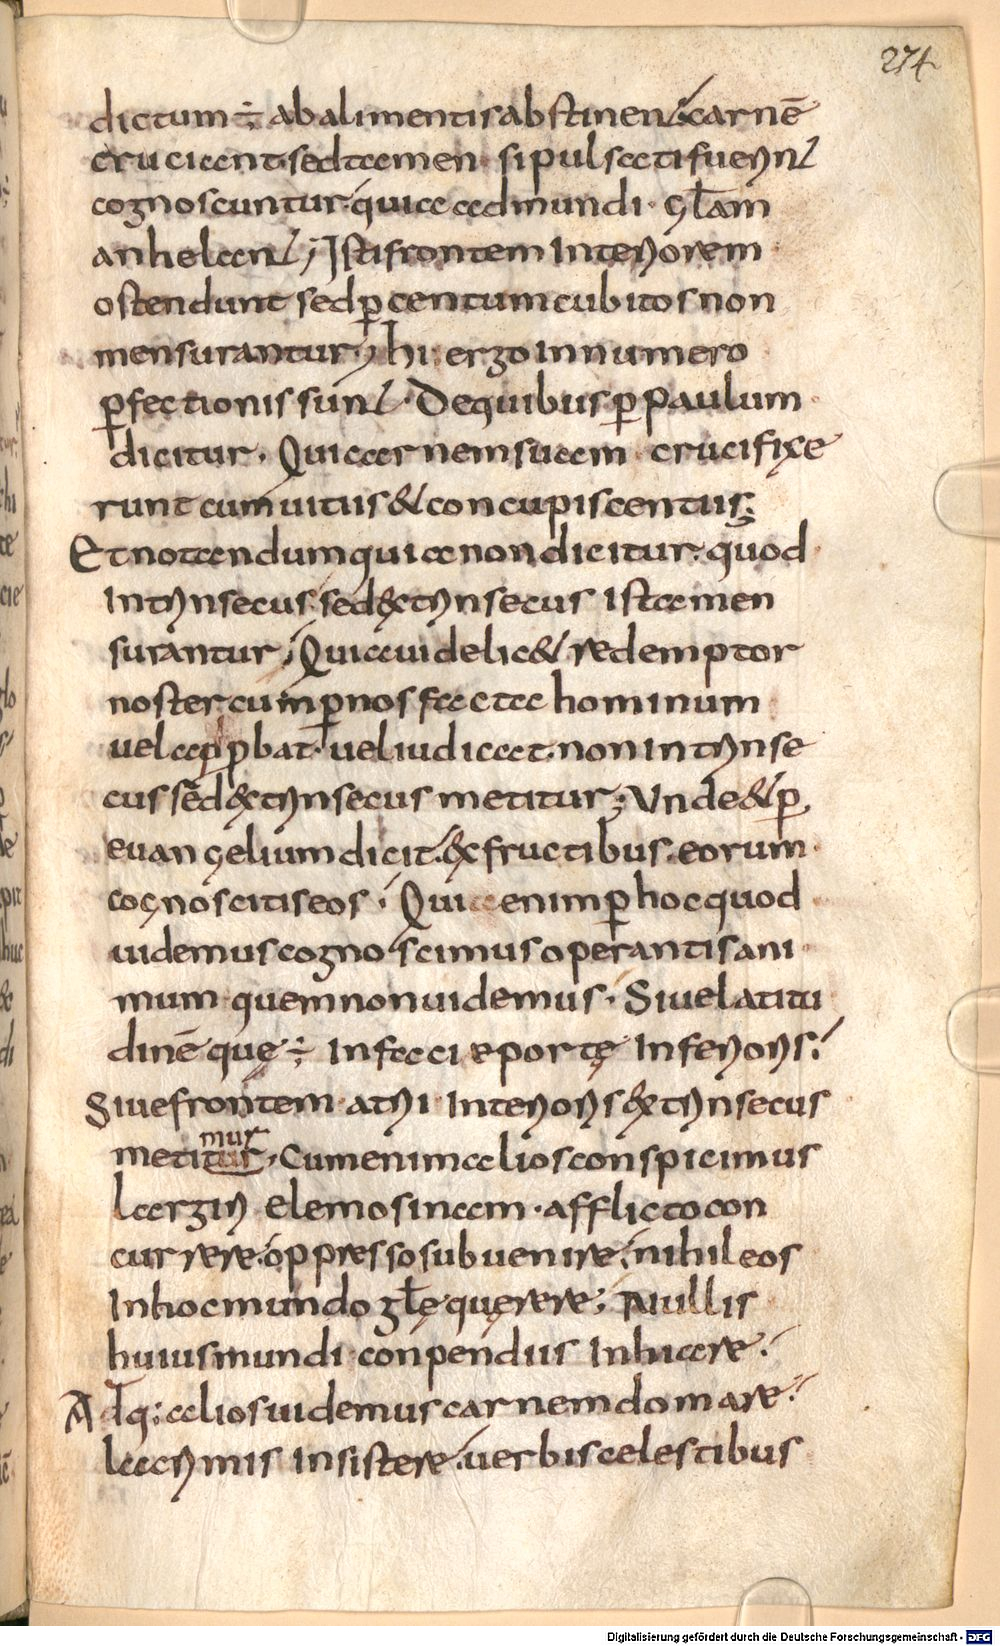 274
dictum ÷ ab alimentis abstinent carnē
cruciant. sed tamen si pulsati fuerint
cognoscuntur. quia ad mundi gl̄am
anhelant; Isti frontem interiorem
ostendunt sed p̲ centum cubitos non
mensurantur; hi ergo in numero
p̲fectionis sunt. De quibus p̲ paulum
dicitur. Qui carnem suam crucifixe
runt cum uitiis & concupiscentiis;
Et notandum quia non dicitur. quod
intrinsecus. sed & extrinsecus ista men
surantur; Quia uidelic& redemptor
noster cum p̲ nos facta hominum
uel app̲bat. uel iudicat. non intrinse
cus sed extrinsecus metitur; Unde & p̲
euangelium dicit. ex fructibus eorum
cognoscitis eos; Quia enim p̲ hoc quod
uidemus cognoscimus operantis ani
mum quem non uidemus. Siue latitu
dinē quę ÷ in facie portę inferioris.
Siue frontem atrii interioris extrinsecus
metitur mur. Cum enim alios conspicimus
largiri elemosinam. afflicto con
currere. oppresso subuenire. nihil eos
in hoc mundo gl̄ę quęrere; Nullis
huius mundi conpendiis inhiare.
Adq; alios uidemus carnem domare.
lacrymis insistere. uerbis celestibus
Digitalisierung gefördert durch die Deutsche Forschungsgemeinschaft - DFG